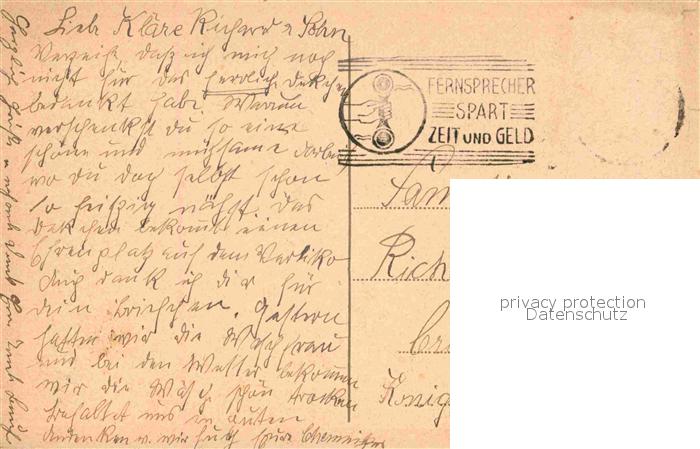 Liebe Kläre Richard u Sohn
Verzeiht daß ich mich noch
nicht für das herrlich Deckchen
bedankt habe. Warum
verschenkst du so eine
schöne und mühsame Arbeit
wo du doch selbst schon
so fleißig nähst. das
Deckchen bekommt einen
Ehrenplatz auf dem Vertiko
Auch dank ich dir für
dein Briefchen. Gestern
hatten wir die Waschfrau
und bei den Wetter bekommen
wir die Wäsch schön trocken
Behaltet uns in guten
Andenken u. wir Euch Eure Chemnitzer
FERNSPRECHER
SPART
ZEIT UND GELD
Fam
Rich
König
privacy protection
Datenschutz